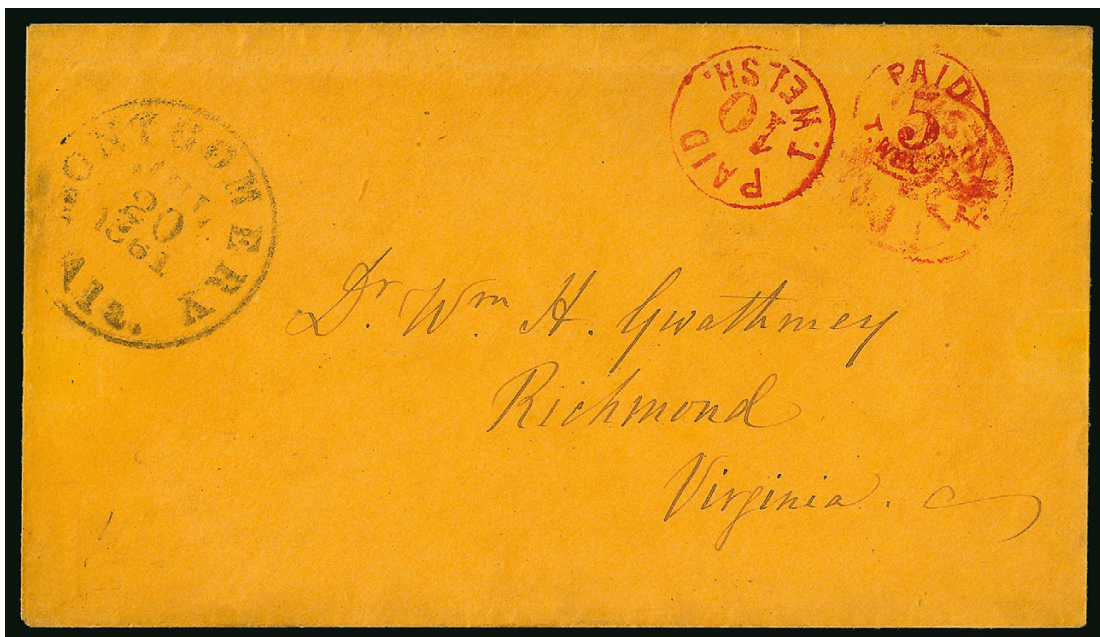 MONTGOMERY Ala.
20
1861
PAID 10 T. WELSH.
PAID 5
Dr. Wm H. Gwathmey
Richmond
Virginia.